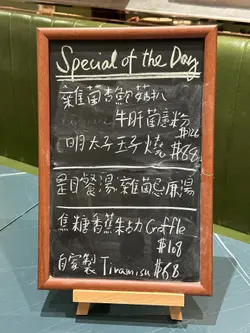 Special of the Day
雜菌杏鮑菇扒
牛肝菌意粉
$122
明太子玉子燒 $88
是日餐湯:雜菌忌廉湯
焦糖香蕉朱古力 Croffle
$108
自家製 Tiramisu $68